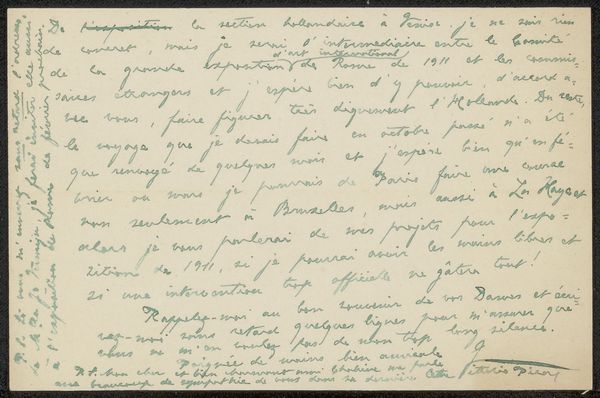 De l'exposition la section hollandaise à Venise je ne sais rien
de concret, mais je serai l'intermédiaire entre le Comité
de la grande exposition d'art international de Rome de 1911 et les commis-
saires étrangers et j'espère bien d'y pouvoir, d'accord a-
vec vous, faire figurer très dignement l'Hollande. Du reste,
le voyage que je devais faire en octobre passé n'a été
que renvoyé de quelques mois et j'espère bien qu'en fé-
vrier ou mars je pourrais de Paris faire une course
non seulement à Bruxelles, mais aussi à La Haye et
alors je vous parlerai de mes projets pour l'expo-
sition de 1911, si je pourrai avoir les mains libres et
si une intervention trop officielle ne gâtera tout!
Rappelez-moi au bon souvenir de vos Dames et écri-
vez-moi sans retard quelques lignes pour m'assurer que
vous ne m'en voulez pas de mon trop long silence.
Poignée de mains bien amicale
Vittorio Pica
P.S. Mon cher et bien charmant ami me parle
avec beaucoup de sympathie de vous dans sa dernière lettre
P.S. Si vous m'envoyez sans retard l'adresse
de M. je ferai inviter elle aussi
à l'exposition de Rome de février prochain.